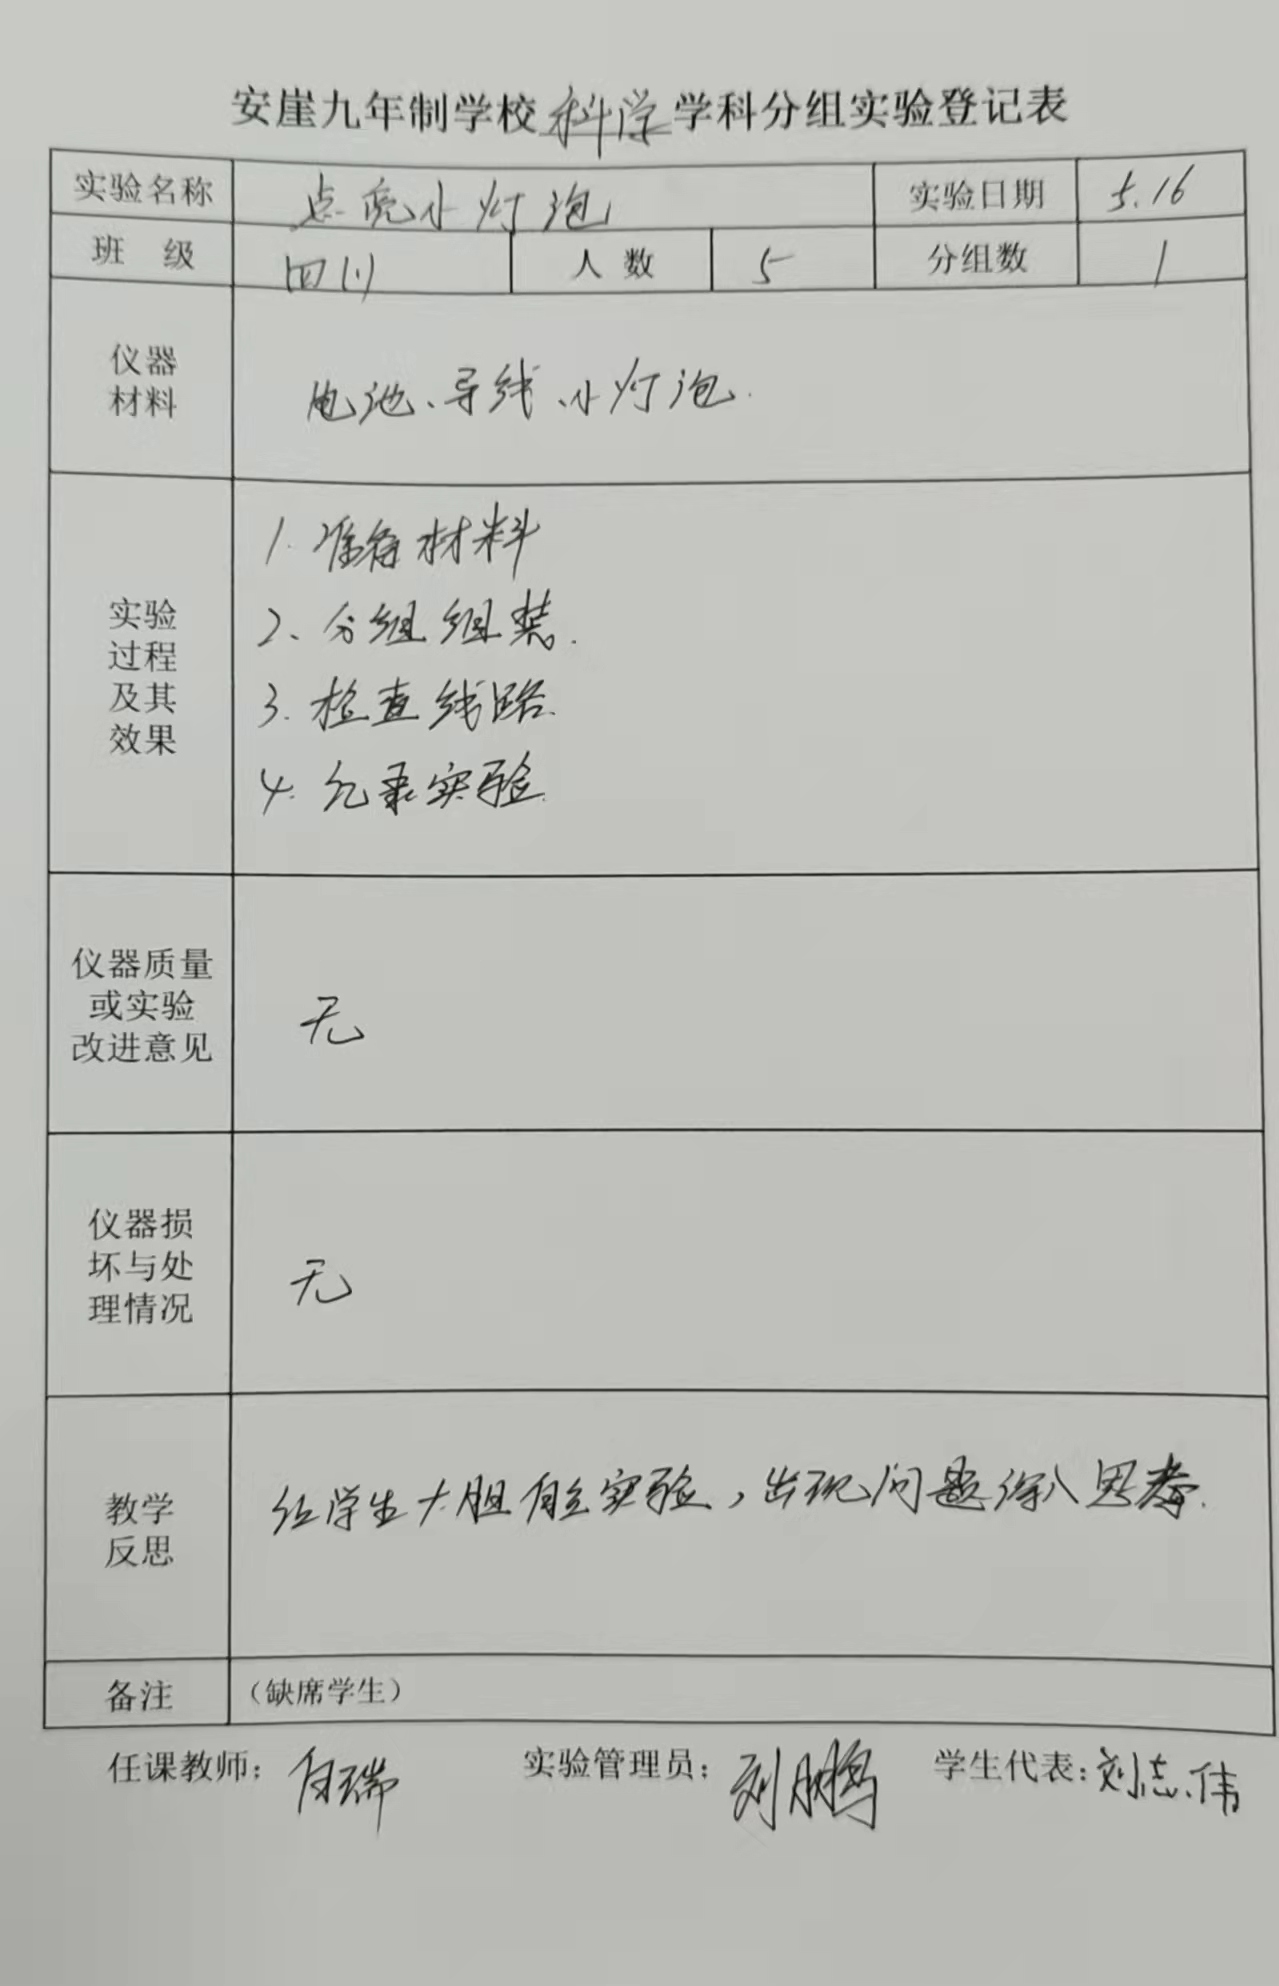 安崖九年制学校科学学科分组实验登记表
实验名称 点亮小灯泡 实验日期 5.16
班 级 四(1) 人 数 5 分组数 1
仪器
材料
电池、导线、小灯泡.
实验
过程
及其
效果
1. 准备材料
2、分组组装.
3. 检查线路.
4. 记录实验.
仪器质量
或实验
改进意见
无
仪器损
坏与处
理情况
无
教学
反思
让学生大胆自主实验，出现问题深入思考.
备注 （缺席学生）
任课教师： 白瑞 实验管理员： 刘鹏 学生代表：刘志伟